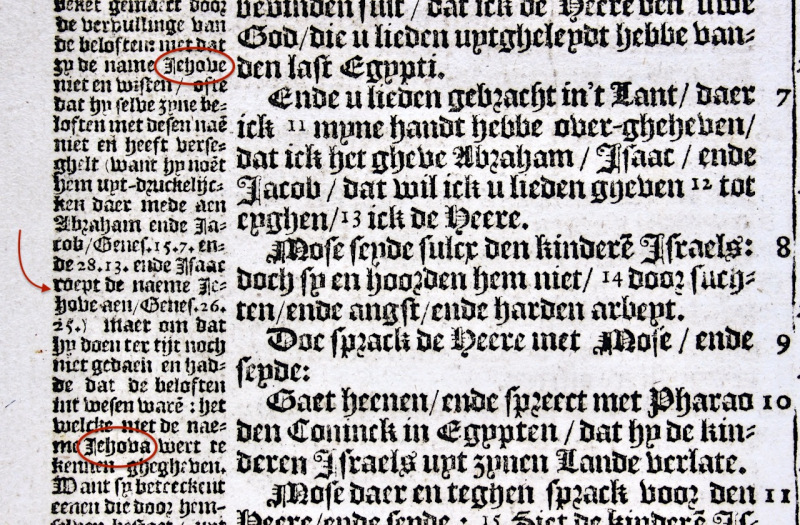 beket gemaect door
de vervullinge van
de beloften: met dat
zy de name Jehove
niet en wisten / ofte
dat hy selve zyne be-
loften met desen naē
niet en heeft verse-
ghelt (want hy noēt
hem uyt-druckelijc-
ken daer mede aen
Abraham ende Ja-
cob/Genes.15.7. en-
de 28.13. ende Isaac
roept de naeme Je-
hove aen/Genes.26.
25.) maer om dat
hy doen ter tijt noch
niet gedaen en had-
de dat de beloften
int wesen warē : het
welcke met de nae-
me Jehova wert te
kennen ghegheven.
Want sy beteeckent
eenen die door hem-
bevinden sult / dat ick de Heere ben uwe
God/die u lieden uytgheleydt hebbe van-
den last Egypti.
Ende u lieden gebracht in't Lant/ daer 7
ick 11 myne handt hebbe over-gheheven/
dat ick het gheve Abraham / Isaac / ende
Jacob / dat wil ick u lieden gheven 12 tot
eyghen/13 ick de Heere.
Mose seyde sulcx den kinderē Israels: 8
doch sy en hoorden hem niet/ 14 door such-
ten/ende angst/ende harden arbeyt.
Doe sprack de Heere met Mose / ende 9
seyde:
Gaet heenen/ende spreect met Pharao 10
den Coninck in Egypten / dat hy de kin-
deren Israels uyt zynen Lande verlate.
Mose daer en teghen sprack voor den 11
Heere/ende seyde : 15 Siet de kinderē Is-